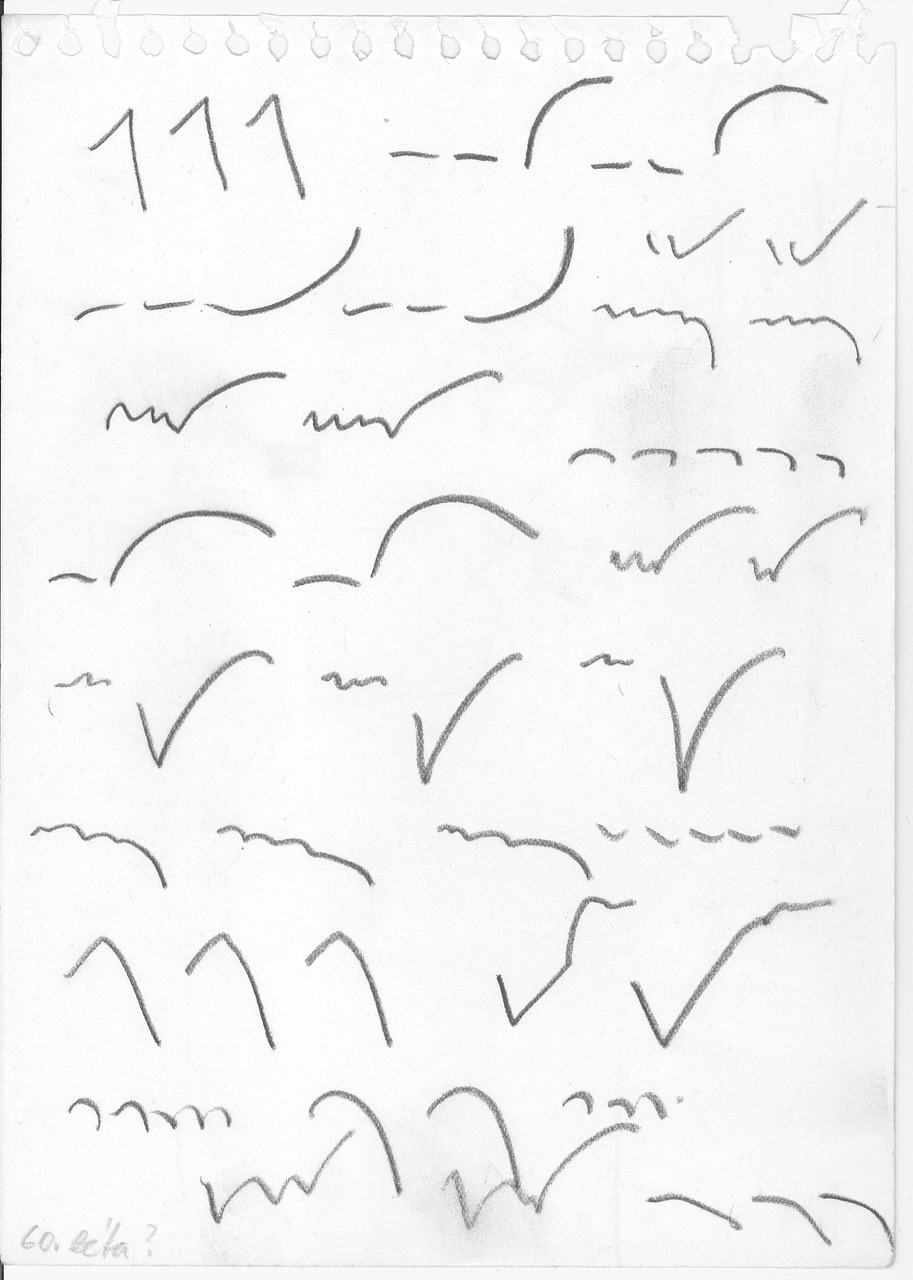 60. léta?